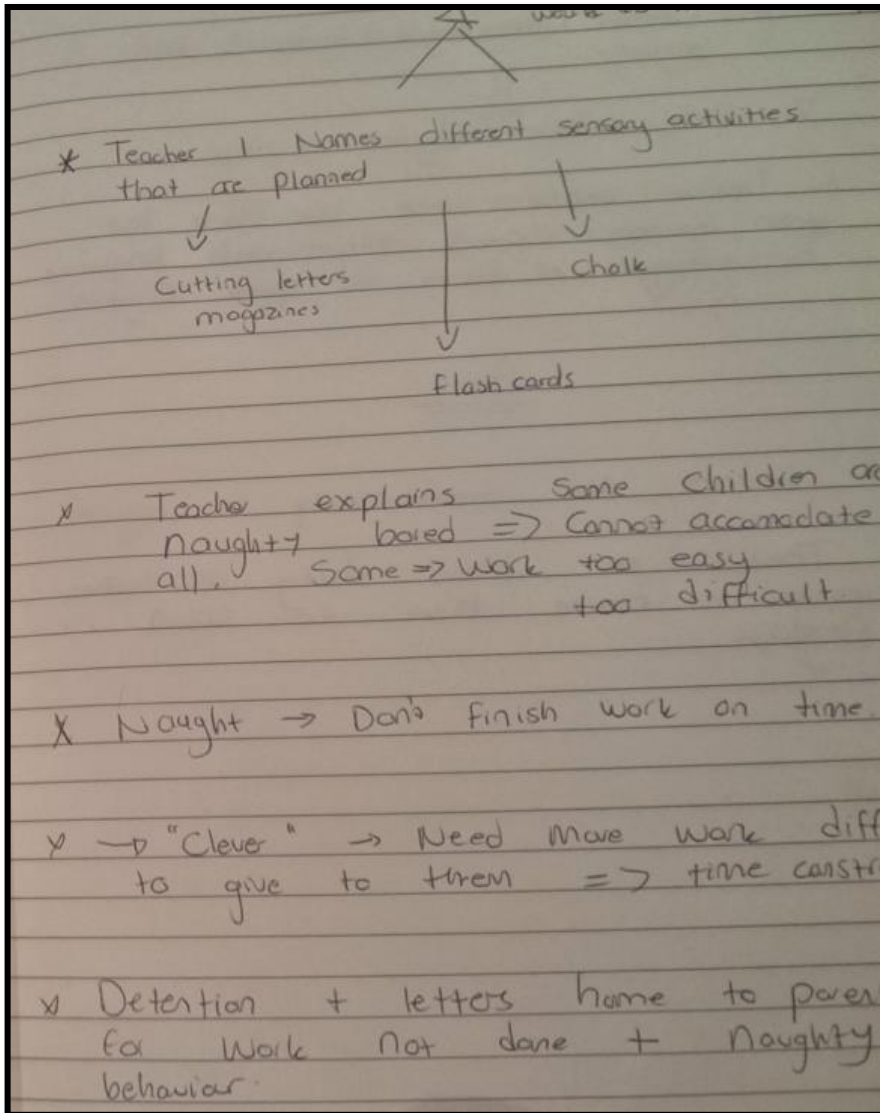 * Teacher 1 Names different sensory activities
that are planned
Cutting letters
magazines
Chalk
flash cards
* Teacher explains Some Children
naughty bored => Cannot accomodate
all. Some => Work too easy
too difficult
* Naught → Don't finish work on time.
* → "Clever" → Need more work diff
to give to them => time constr
* Detention + letters home to paren
for work not done + naughty
behavior.